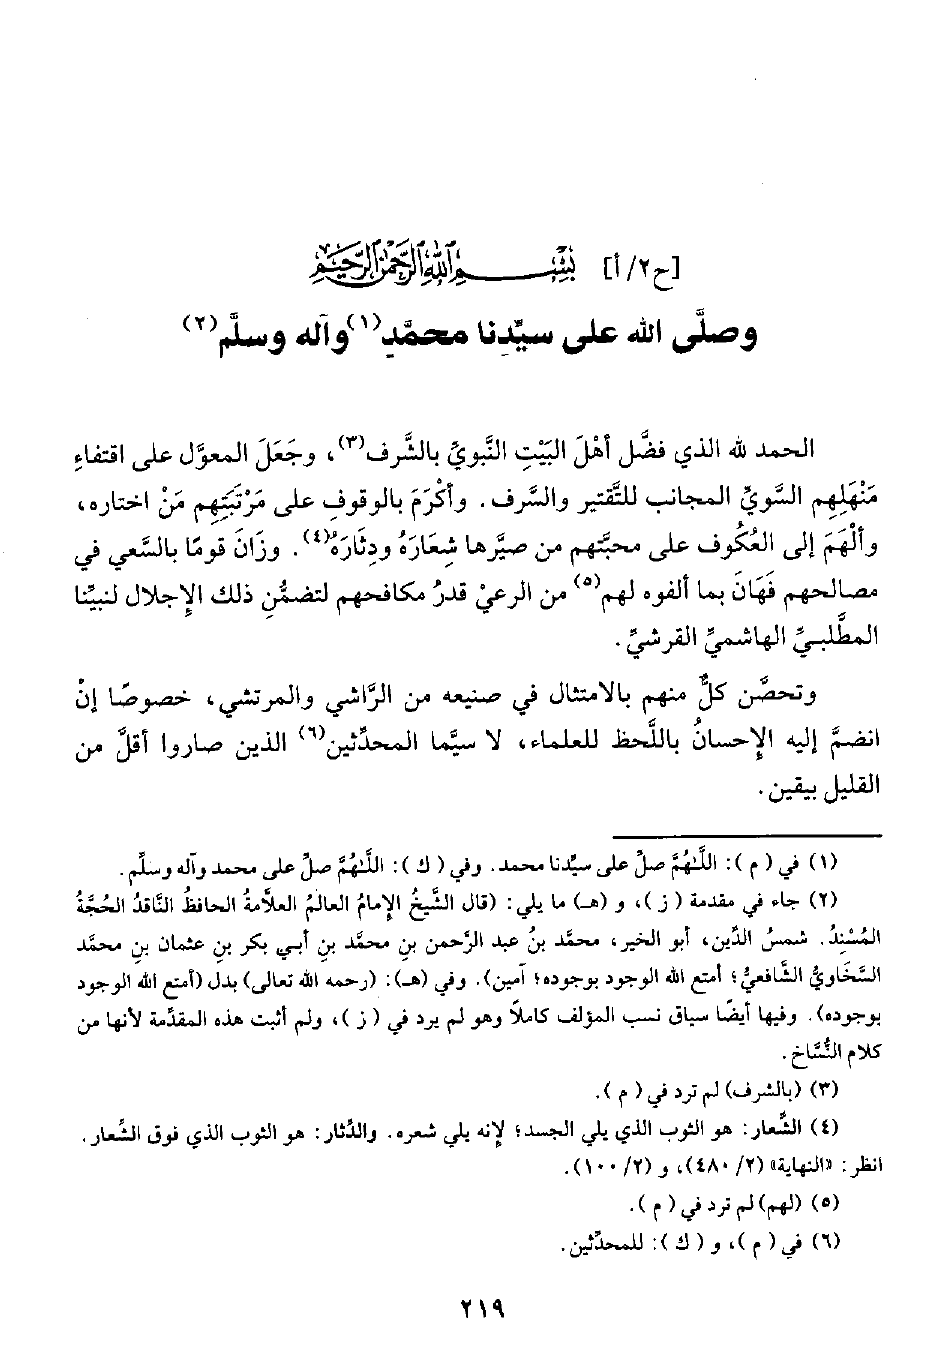 [ح٢/أ] بسم الله الرحمن الرحيم
وصلَّى الله على سيِّدنا محمَّدٍ(١) وآله وسلَّم(٢)
الحمد لله الذي فضَّل أهْلَ البَيْتِ النَّبويِّ بالشَّرف(٣)، وجَعَلَ المعوَّل على اقتفاءِ
مَنْهَلِهِم السَّويِّ المجانب للتَّقتير والسَّرف. وأكْرَمَ بالوقوفِ على مَرْتَبَتِهِم مَنْ اختاره،
وألْهَمَ إلى العُكُوف على محبَّتهم من صيَّرها شِعَارَهُ ودِثَارَهُ(٤). وزَانَ قومًا بالسَّعي في
مصالحهم فَهَانَ بما ألفوه لهم(٥) من الرعيْ قدرُ مكافحهم لتضمُّنِ ذلك الإجلال لنبيِّنا
المطَّلبيِّ الهاشميِّ القرشيِّ.
وتحصَّن كلٌّ منهم بالامتثال في صنيعه من الرَّاشي والمرتشي، خصوصًا إنْ
انضمَّ إليه الإحسانُ باللَّحظ للعلماء، لا سيَّما المحدِّثين(٦) الذين صاروا أقلَّ من
القليل بيقين.
(١) في ( م ): اللَّهُمَّ صلِّ على سيِّدنا محمد. وفي ( ك ): اللَّهُمَّ صلِّ على محمد وآله وسلِّم.
(٢) جاء في مقدمة ( ز )، و (هـ) ما يلي: (قال الشَّيخُ الإمامُ العالمُ العلاَّمةُ الحافظُ النَّاقدُ الحُجَّةُ
المُسْنِدُ. شمسُ الدِّين، أبو الخير، محمَّد بنُ عبد الرَّحمن بنِ محمَّد بنِ أبي بكر بنِ عثمان بنِ محمَّد
السَّخاويُّ الشَّافعيُّ؛ أمتع الله الوجود بوجوده؛ آمين). وفي (هـ): (رحمه الله تعالى) بدل (أمتع الله الوجود
بوجوده). وفيها أيضًا سياق نسب المؤلف كاملاً وهو لم يرد في ( ز )، ولم أثبت هذه المقدِّمة لأنها من
كلام النُّسَّاخ.
(٣) (بالشرف) لم ترد في ( م ).
(٤) الشِّعار: هو الثوب الذي يلي الجسد؛ لإنه يلي شعره. والدِّثار: هو الثوب الذي فوق الشِّعار.
انظر: «النهاية» (٢/ ٤٨٠)، و (٢/ ١٠٠).
(٥) (لهم) لم ترد في ( م ).
(٦) في ( م )، و ( ك ): للمحدِّثين.
٢١٩